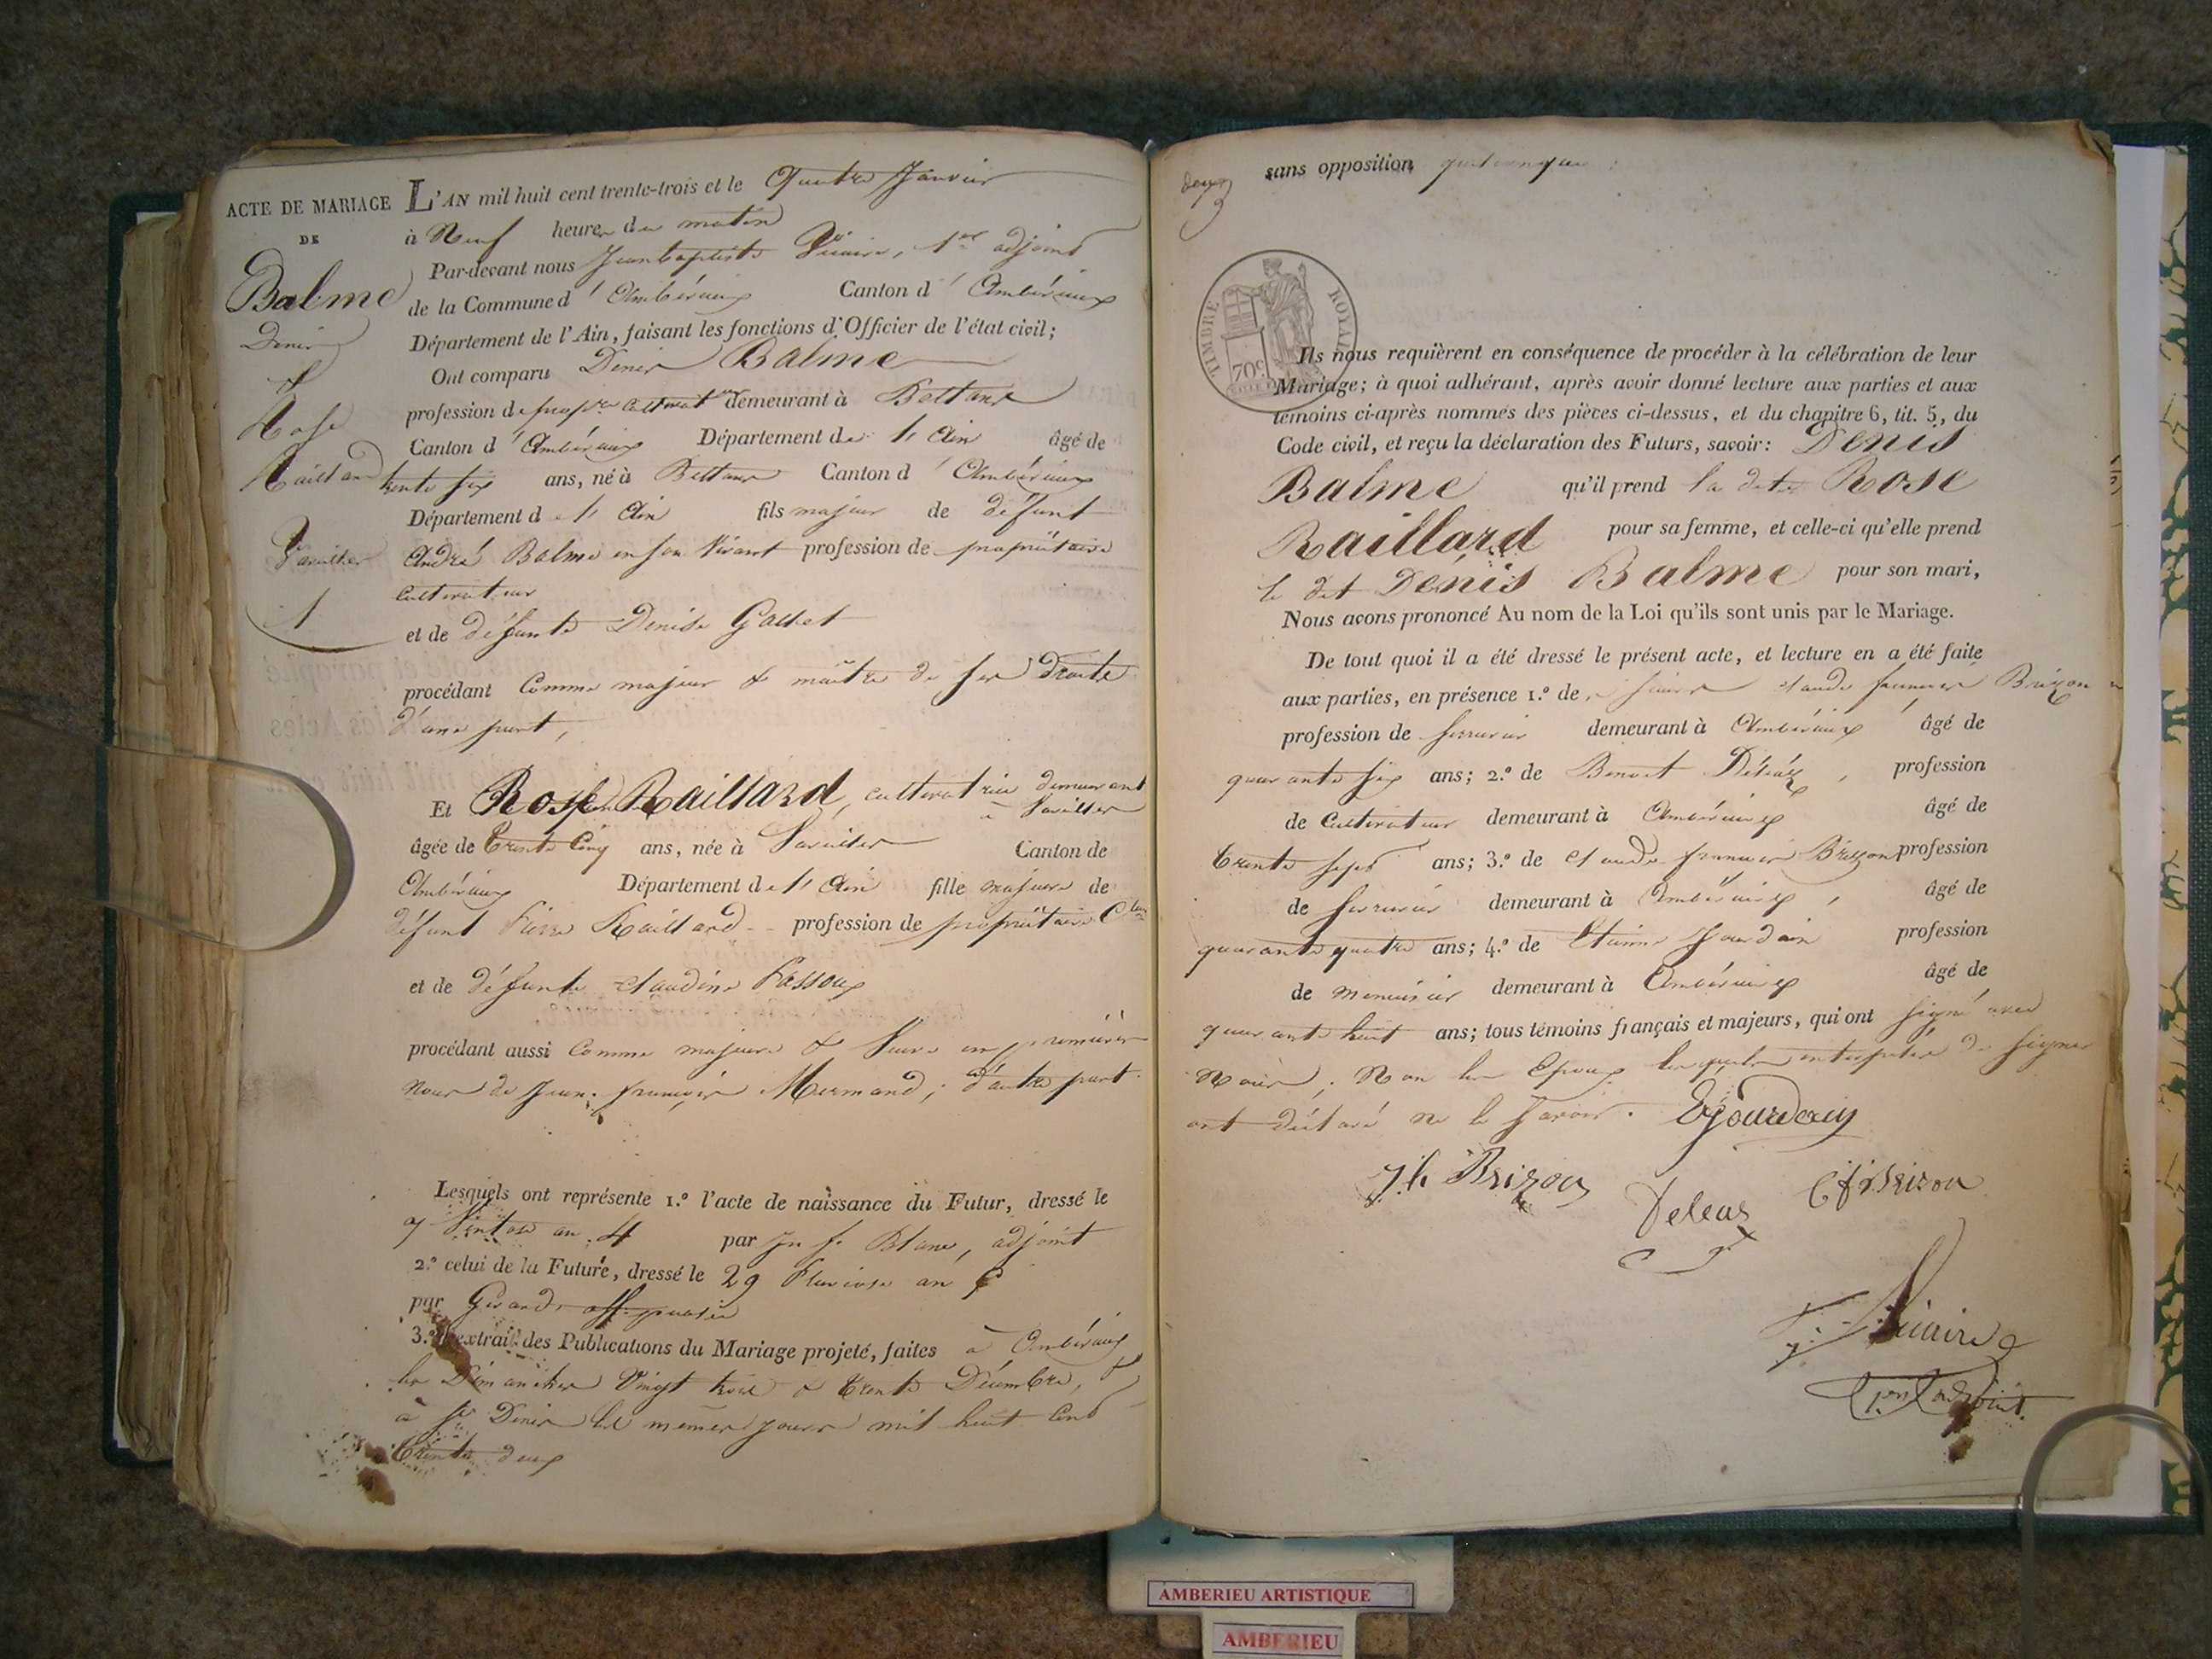 ACTE DE MARIAGE
DE
Balme
Denis
&
Rose
Raillard
Vareilles
1
L'AN mil huit cent trente-trois et le Quatre Janvier
à Neuf heures du matin
Par-devant nous Jean baptiste 1er adjoint
de la Commune d'Ambérieux Canton d'Ambérieux
Département de l'Ain, faisant les fonctions d'Officier de l'état civil;
Ont comparu Denis Balme
profession de propre cultivateur demeurant à Bettant
Canton d'Ambérieux Département de l'Ain âgé de
trente six ans, né à Bettant Canton d'Ambérieux
Département de l'Ain fils majeur de défunt
André Balme en son vivant profession de propriétaire
cultivateur
et de défunte Denise Gallet
procédant Comme majeur & maître de ses droits
d'une part,
Et Rose Raillard, cultivatrice demeurant
à Vareilles
âgée de Trente Cinq ans, née à Vareilles Canton de
Ambérieux Département de l'Ain fille majeure de
défunt Pierre Raillard profession de propriétaire Cteur
et de défunte Claudine Passoux
procédant aussi Comme majeure & Veuve en premières
noces de Jean-françois Mermand; d'autre part.
Lesquels ont représente 1.º l'acte de naissance du Futur, dressé le
7 Ventose an 4 par Jn fs Blanc, adjoint
2.º celui de la Future, dressé le 29 Pluviose an
par Girard, off. public
3.º l'extrait des Publications du Mariage projeté, faites à Ambérieux
les Dimanches Vingt trois & trente Décembre, &
à St Denis les mêmes jours mil huit Cent
Trente deux
sans opposition quelconque
Ils nous requièrent en conséquence de procéder à la célébration de leur
TIMBRE ROYAL
70c
Mariage; à quoi adhérant, après avoir donné lecture aux parties et aux
témoins ci-après nommés des pièces ci-dessus, et du chapitre 6, tit. 5, du
Code civil, et reçu la déclaration des Futurs, savoir: Denis
Balme qu'il prend la dite Rose
Raillard pour sa femme, et celle-ci qu'elle prend
le dit Denis Balme pour son mari,
Nous avons prononcé Au nom de la Loi qu'ils sont unis par le Mariage.
De tout quoi il a été dressé le présent acte, et lecture en a été faite
aux parties, en présence 1.º de Brizon
profession de serrurier demeurant à Ambérieux âgé de
quarante six ans; 2.º de Benoit Déléaz, profession
de Cultivateur demeurant à Ambérieux âgé de
trente sept ans; 3.º de Claude françois Brizon profession
de serrurier demeurant à Ambérieux, âgé de
quarante quatre ans; 4.º de Etienne Jourdain profession
de menuisier demeurant à Ambérieux âgé de
quarante huit ans; tous témoins français et majeurs, qui ont signé avec
Nous; Non les Epoux lesquels interpelés de signer
ont déclaré ne le savoir. E Jourdain
Jh Brizon
Deleas
C f Brizon
AMBERIEU ARTISTIQUE
AMBERIEU